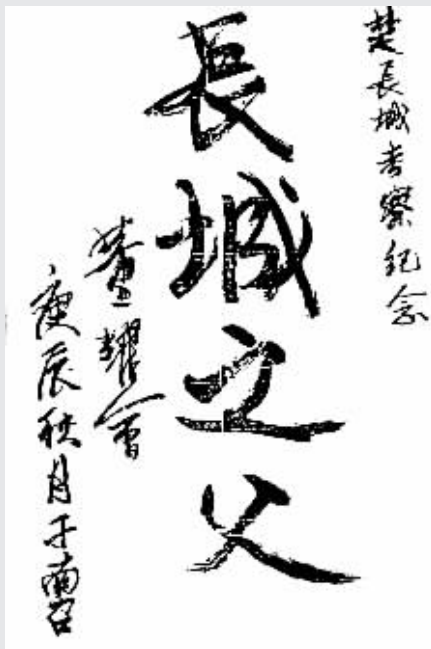 楚長城考察纪念
長城之父
董耀會
庚辰秋月于南召